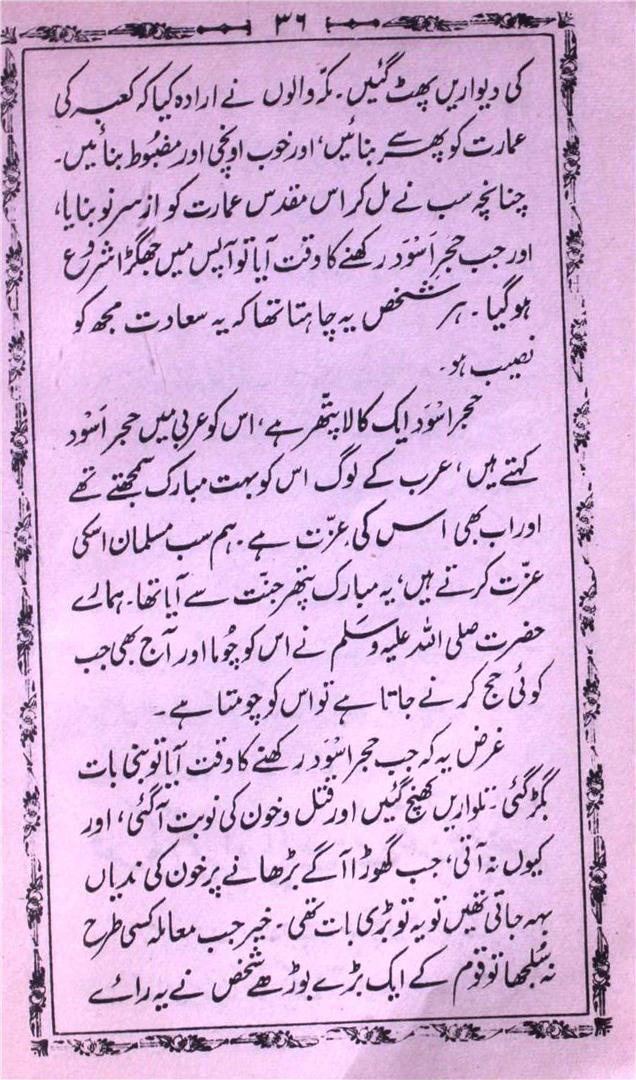 ۳۶
کی دیواریں پھٹ گئیں۔ مکّہ والوں نے ارادہ کیا کہ کعبہ کی
عمارت کو پھر سے بنائیں، اور خوب اونچی اور مضبُوط بنائیں۔
چنانچہ سب نے مل کر اس مقدس عمارت کو از سر نو بنایا،
اور جب حجرِ اَسْوَد رکھنے کا وقت آیا تو آپس میں جھگڑا شروع
ہو گیا۔ ہر شخص یہ چاہتا تھا کہ یہ سعادت مجھ کو
نصیب ہو۔
حجرِ اسْوَد ایک کالا پتّھر ہے، اس کو عربی میں حجرِ اَسْوَد
کہتے ہیں، عرب کے لوگ اس کو بہت مبارک سمجھتے تھے
اور اب بھی اس کی عزّت ہے۔ ہم سب مسلمان اسکی
عزّت کرتے ہیں، یہ مبارک پتھر جنّت سے آیا تھا۔ ہمارے
حضرت صلی اللہ علیہ وسلم نے اس کو چُوما اور آج بھی جب
کوئی حج کرنے جاتا ہے تو اس کو چومتا ہے۔
غرض یہ کہ جب حجرِ اسْوَد رکھنے کا وقت آیا تو بنی بات
بگڑ گئی۔ تلواریں کھنچ گئیں اور قتل و خون کی نوبت آ گئی، اور
کیوں نہ آتی، جب گھوڑا آگے بڑھانے پر خون کی ندیاں
بہہ جاتی تھیں تو یہ تو بڑی بات تھی۔ خیر جب معاملہ کسی طرح
نہ سُلجھا تو قوم کے ایک بڑے بوڑھے شخص نے یہ رائے